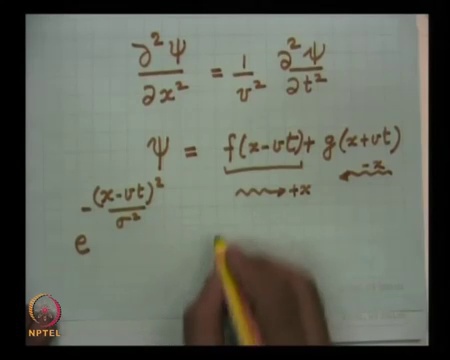 ∂²Ψ/∂x² = 1/v² ∂²Ψ/∂t²
Ψ = f(x-vt) + g(x+vt)
→ +x ← -x
e^-(x-vt)²/σ²
NPTEL